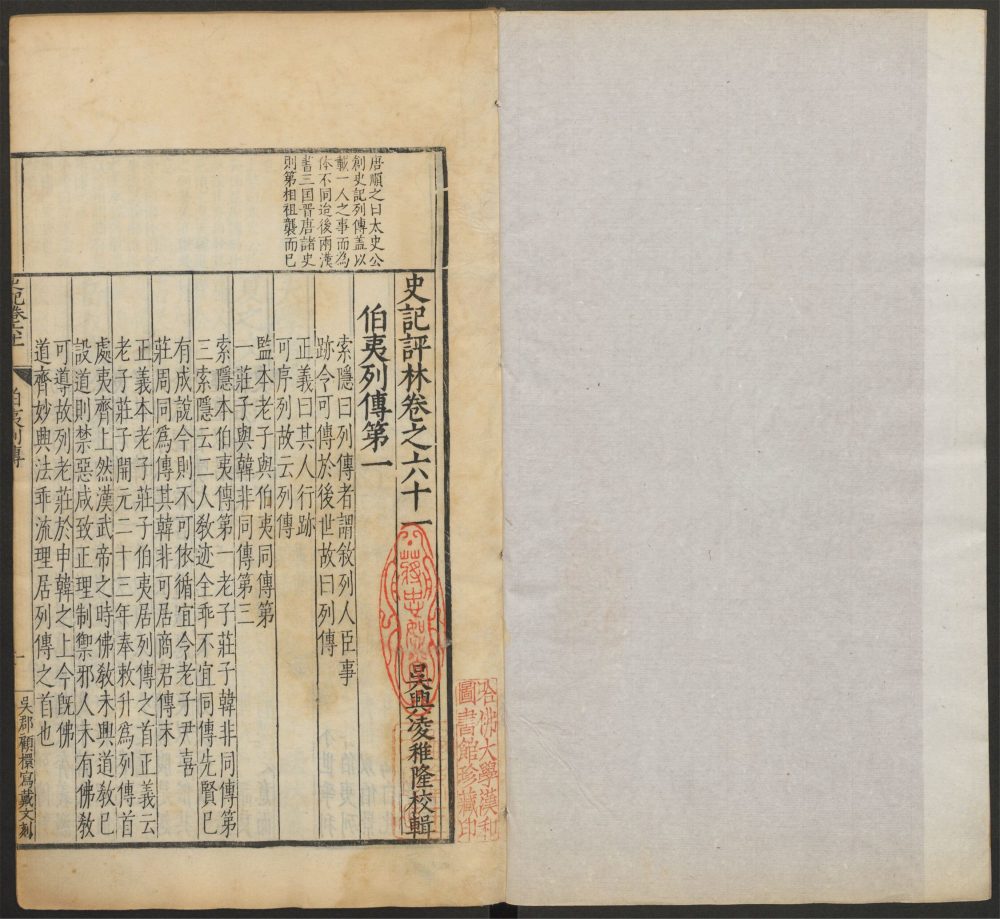 史記評林卷之六十一
吳興凌稚隆校輯
伯夷列傳第一
唐順之曰太史公
創史記列傳蓋以
載一人之事而為
体不同迨後兩漢
書三国晉唐諸史
則第相祖襲而已
索隱曰列傳者謂敘列人臣事
跡令可傳於後世故曰列傳
正義曰其人行跡
可序列故云列傳
監本老子與伯夷同傳第
一莊子與韓非同傳第三
索隱本伯夷傳第一老子莊子韓非同傳第
三索隱云二人教迹全乖不宜同傳先賢已
有成說今則不可依循宜令老子尹喜
莊周同爲傳其韓非可居商君傳末
正義本老子莊子伯夷居列傳之首正義云
老子莊子開元二十三年奉敕升爲列傳首
處夷齊上然漢武帝之時佛教未興道教已
設道則禁惡咸致正理制禦邪人未有佛教
可導故列老莊於申韓之上今旣佛
道齊妙典法乖流理居列傳之首也
史記卷六十一
伯夷列傳
一
吳郡顧櫄寫戴文刻
哈佛大學漢和
圖書館珍藏印